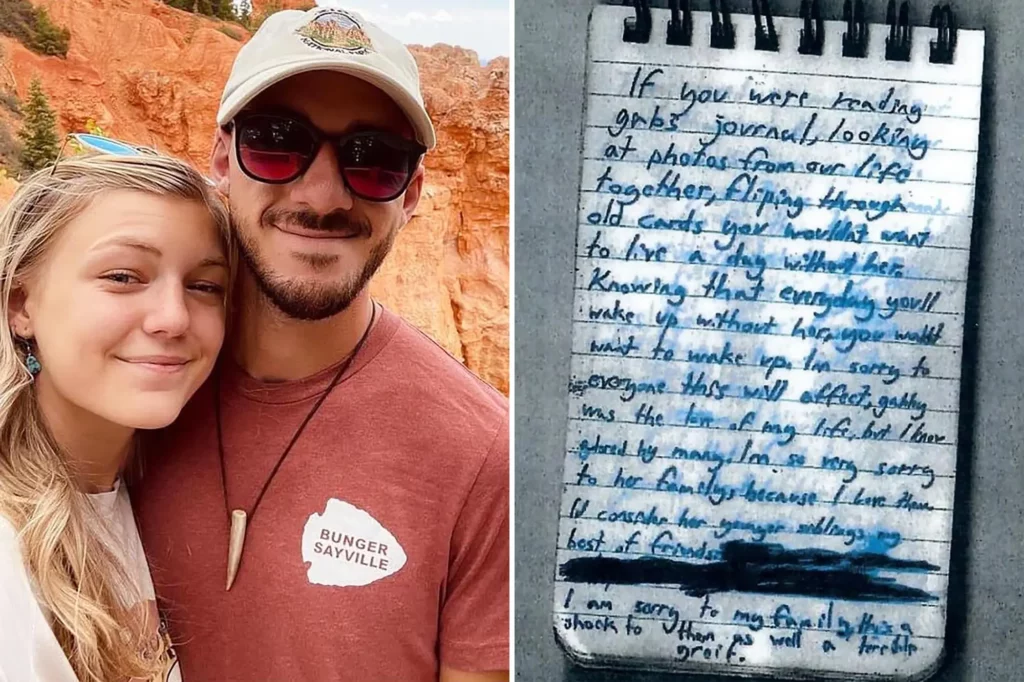 BUNGER
SAYVILLE
If you were reading
gabs journal, looking
at photos from our life
together, fliping through
old cards you wouldnt want
to live a day without her.
Knowing that everyday you'll
wake up without her, you wouldnt
want to wake up. I'm sorry to
everyone this will affect, gabby
was the love of my life, but I know
adored by many. I'm so very sorry
to her family, because I love them.
I'd consider her younger siblings my
best of friends.
I am sorry to my family, this a
shock to them as well a terrible
greif.